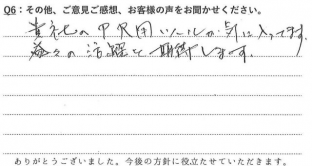 Q6：その他、ご意見ご感想、お客様の声をお聞かせください。
貴社の中尺用リールが気に入ってます。
益々の活躍を期待します。
ありがとうございました。今後の方針に役立たせていただきます。